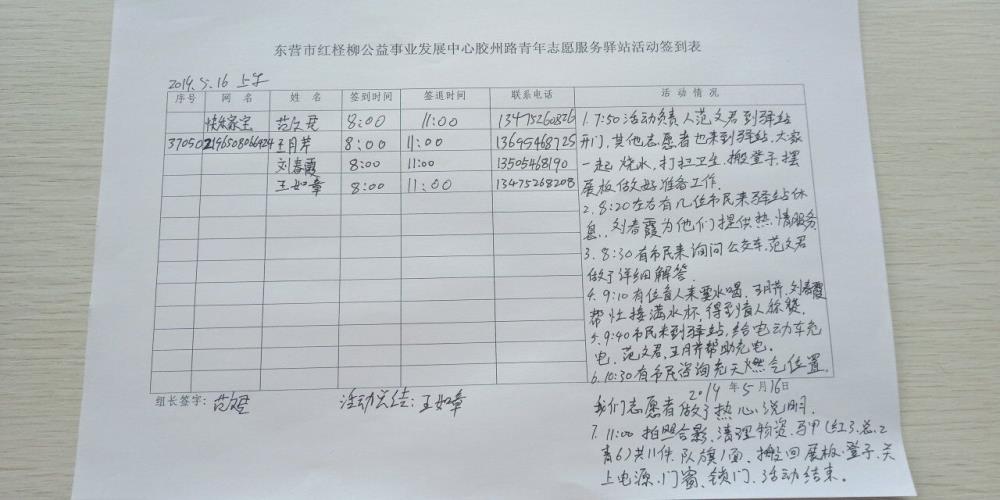 东营市红柽柳公益事业发展中心胶州路青年志愿服务驿站活动签到表
2019.5.16 上午
序号 网名 姓名 签到时间 签退时间 联系电话 活动情况
快乐家宝 范文君 8:00 11:00 13475260826
王月芹 8:00 11:00 13695468725
刘春霞 8:00 11:00 13505468190
王如章 8:00 11:00 13475268208
1.7:50活动负责人范文君到驿站
开门,其他志愿者也来到驿站,大家
一起烧水,打扫卫生,搬凳子,摆
展板做好准备工作.
2.8:20左右有几位市民来驿站休
息,刘春霞为他们提供热情服务
3.8:30有市民来询问公交车,范文君
做了详细解答.
4.9:10有位盲人来要水喝,王月芹,刘春霞
帮忙接满水杯,得到盲人称赞
5.9:40市民来到驿站,给电动车充
电,范文君,王月芹帮助充电。
6.10:30有市民咨询充天燃气位置,
组长签字:范文君 活动总结:王如章
2019年5月16日
我们志愿者做了热心说明.
7.11:00 拍照合影、清理物资、马甲(红3、
青6)共11件、队旗1面、搬回展板、凳子、关
上电源、门窗、锁门、活动结束。